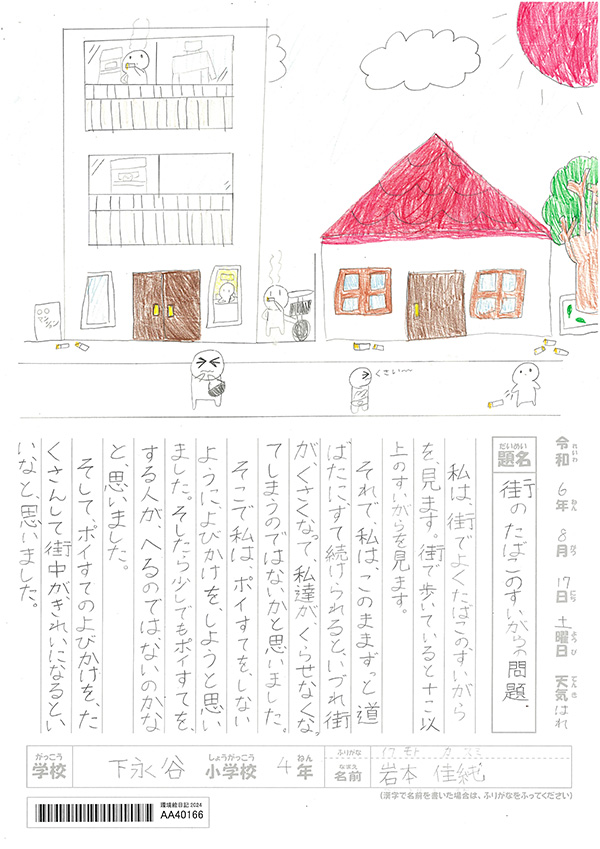 ○○
マンション
くさい〜
令和 6年 8月 17日 土曜日 天気 はれ
れいわ ねん がつ にち ようび てんき
だいめい
題名
街のたばこのすいがらの問題.
私は、街でよくたばこのすいがら
を、見ます。街で歩いていると十こ以
上のすいがらを見ます。
それで、私は、このままずっと道
ばたにすて続けられると、いづれ街
が、くさくなって、私達が、くらせなくな
てしまうのではないかと思いました。
そこで私は、ポイすてを、しない
ように、よびかけを、しようと思い
ました。そしたら少しでもポイすてを、
する人が、へるのでは、ないのかな
と、思いました。
そして、ポイすてのよびかけを、た
くさんして街中がきれいになるとい
いなと、思いました。
がっこう しょうがっこう ねん
学校 下永谷 小学校 4年
ふりがな イワモト カスミ
なまえ
名前 岩本 佳純
(漢字で名前を書いた場合は、ふりがなをふってください)
環境絵日記2024
AA40166